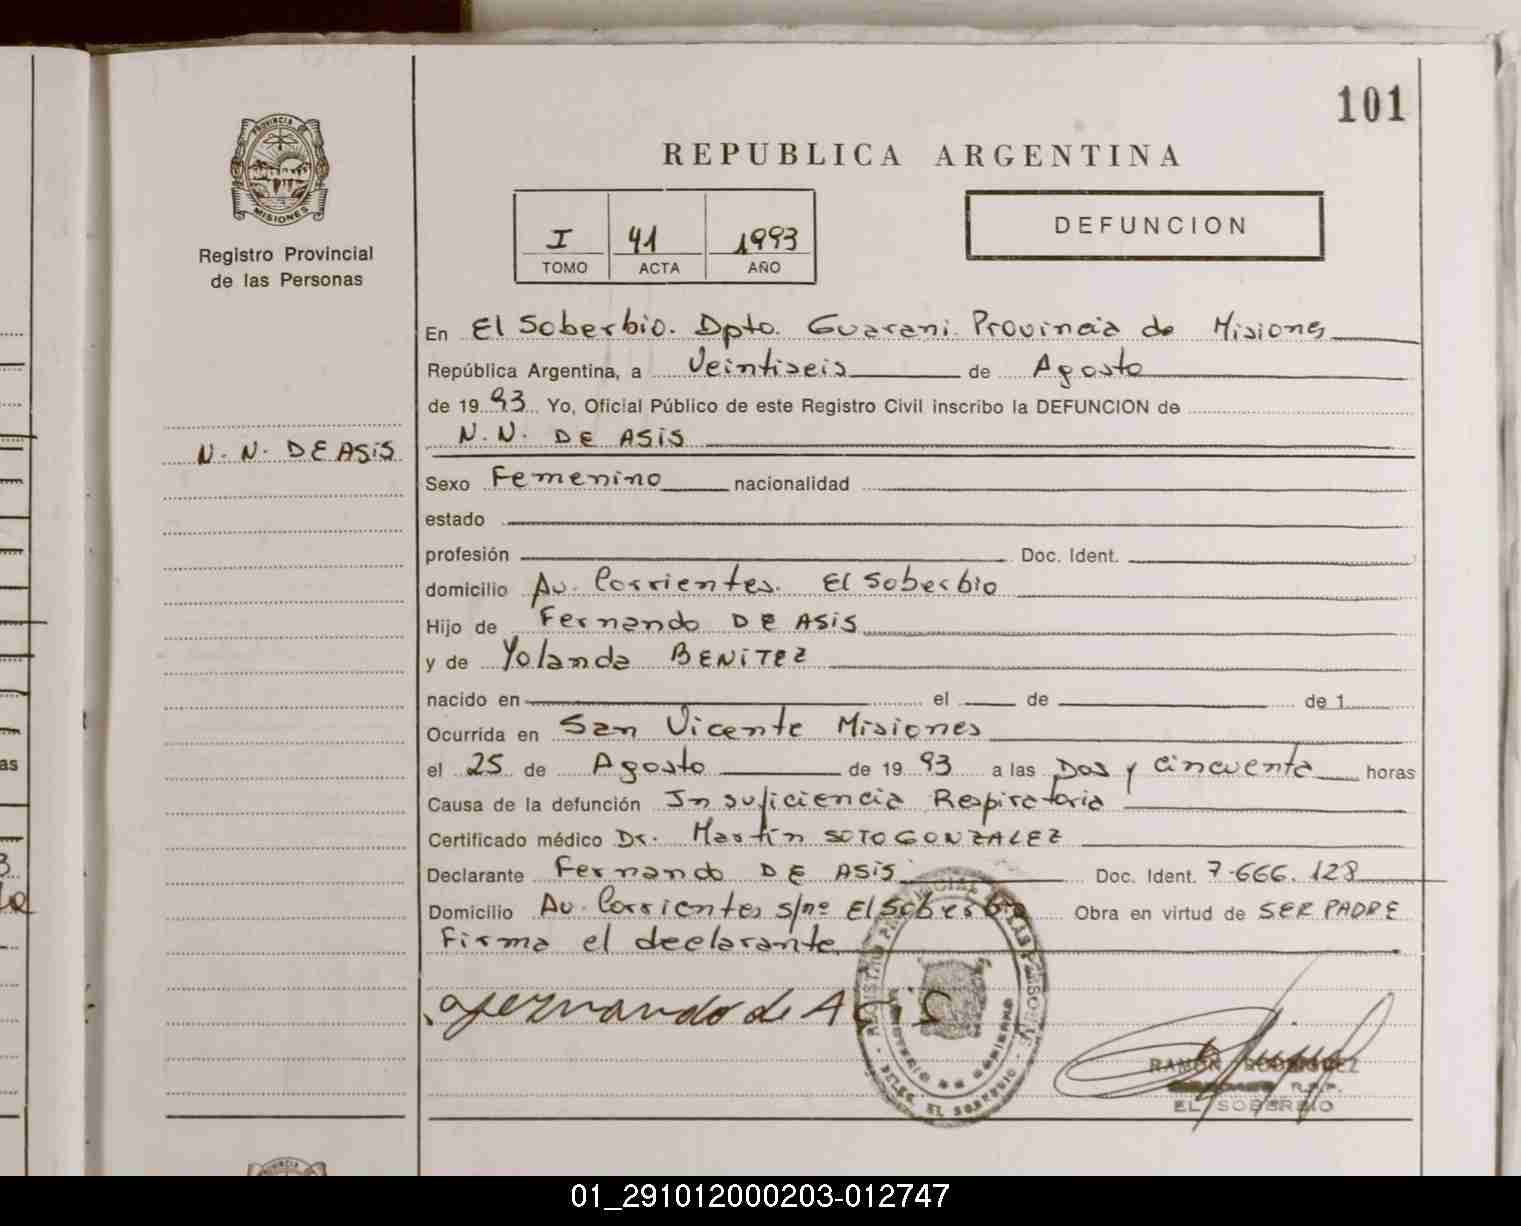 101
PROVINCIA DE
MISIONES
Registro Provincial
de las Personas
REPUBLICA ARGENTINA
I 41 1993
TOMO ACTA AÑO
DEFUNCION
N. N. DE ASiS
En El Soberbio. Dpto. Guarani. Provincia de Misiones
República Argentina, a Veintiseis de Agosto
de 19 93 Yo, Oficial Público de este Registro Civil inscribo la DEFUNCION de
N. N. DE ASiS
Sexo Femenino nacionalidad
estado
profesión Doc. Ident.
domicilio Av. Corrientes. El Soberbio
Hijo de Fernando DE ASiS
y de Yolanda BENiTEZ
nacido en el de de 1
Ocurrida en San Vicente Misiones
el 25 de Agosto de 19 93 a las Dos y cincuenta horas
Causa de la defunción Insuficiencia Respiratoria
Certificado médico Dr. Martín SOTO GONZALEZ
Declarante Fernando DE ASiS Doc. Ident. 7.666.128
Domicilio Av. Corrientes s/nº El Soberbio Obra en virtud de SER PADRE
Firma el declarante
fernando de ASiS
REGISTRO PROVINCIAL DE LAS PERSONAS
MINISTERIO DE GOBIERNO
DELEG. EL SOBERBIO
RAMON RODRIGUEZ
R.P.P.
EL SOBERBIO
01_291012000203-012747